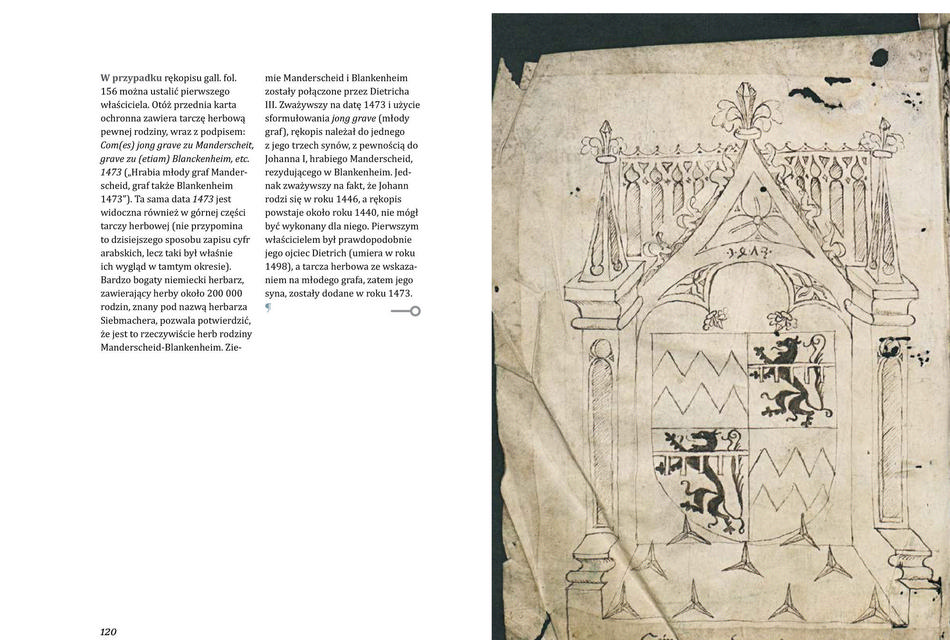 W przypadku rękopisu gall. fol.
156 można ustalić pierwszego
właściciela. Otóż przednia karta
ochronna zawiera tarczę herbową
pewnej rodziny, wraz z podpisem:
Com(es) jong grave zu Manderscheit,
grave zu (etiam) Blanckenheim, etc.
1473 („Hrabia młody graf Mander-
scheid, graf także Blankenheim
1473”). Ta sama data 1473 jest
widoczna również w górnej części
tarczy herbowej (nie przypomina
to dzisiejszego sposobu zapisu cyfr
arabskich, lecz taki był właśnie
ich wygląd w tamtym okresie).
Bardzo bogaty niemiecki herbarz,
zawierający herby około 200 000
rodzin, znany pod nazwą herbarza
Siebmachera, pozwala potwierdzić,
że jest to rzeczywiście herb rodziny
Manderscheid-Blankenheim. Zie-
mie Manderscheid i Blankenheim
zostały połączone przez Dietricha
III. Zważywszy na datę 1473 i użycie
sformułowania jong grave (młody
graf), rękopis należał do jednego
z jego trzech synów, z pewnością do
Johanna I, hrabiego Manderscheid,
rezydującego w Blankenheim. Jed-
nak zważywszy na fakt, że Johann
rodzi się w roku 1446, a rękopis
powstaje około roku 1440, nie mógł
być wykonany dla niego. Pierwszym
właścicielem był prawdopodobnie
jego ojciec Dietrich (umiera w roku
1498), a tarcza herbowa ze wskaza-
niem na młodego grafa, zatem jego
syna, zostały dodane w roku 1473.
¶
120